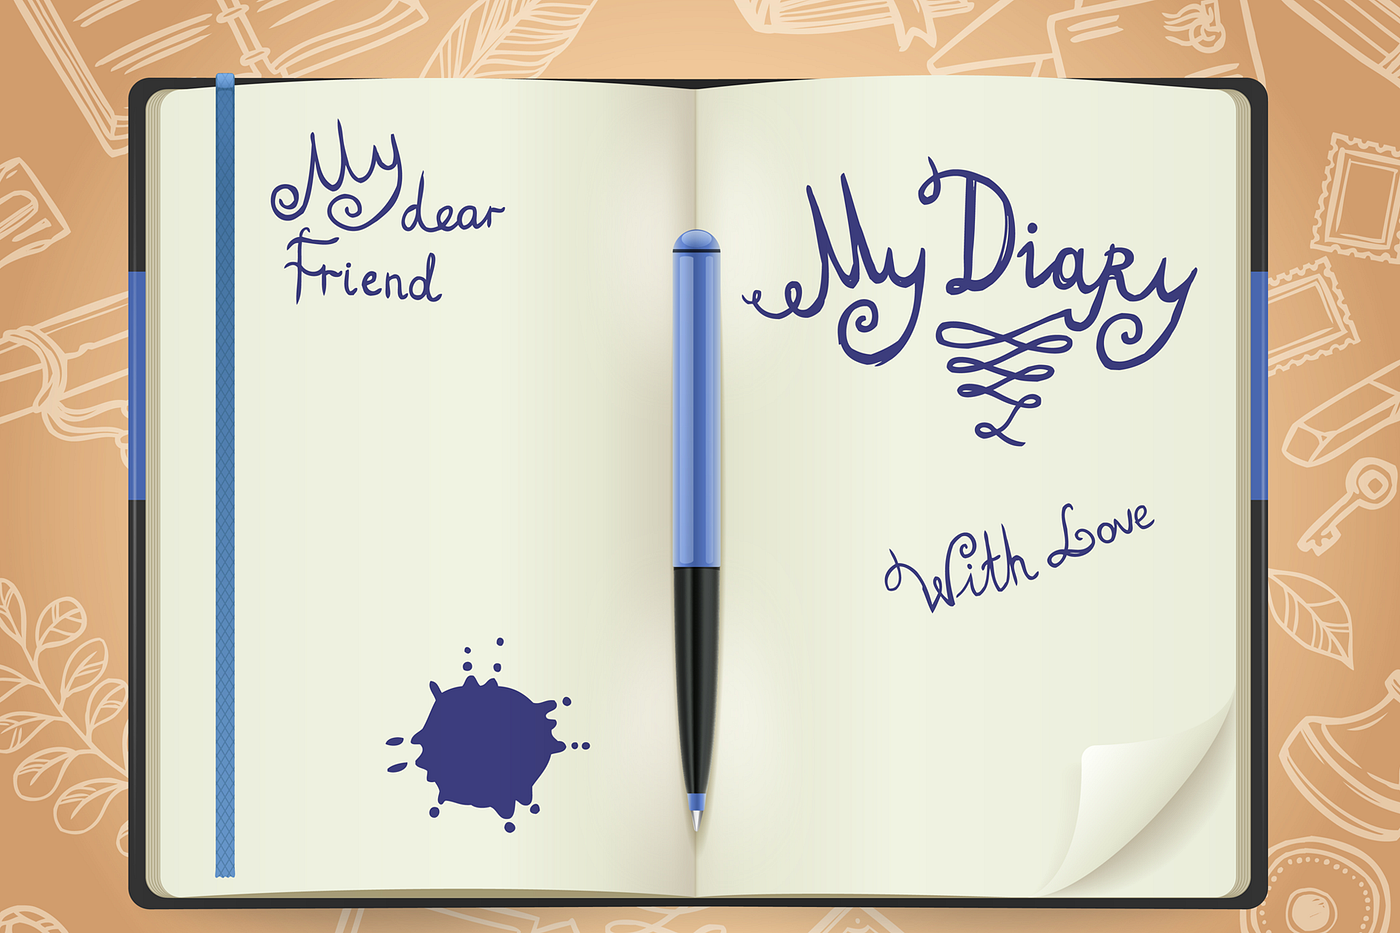 My dear
Friend
My Diary
With Love